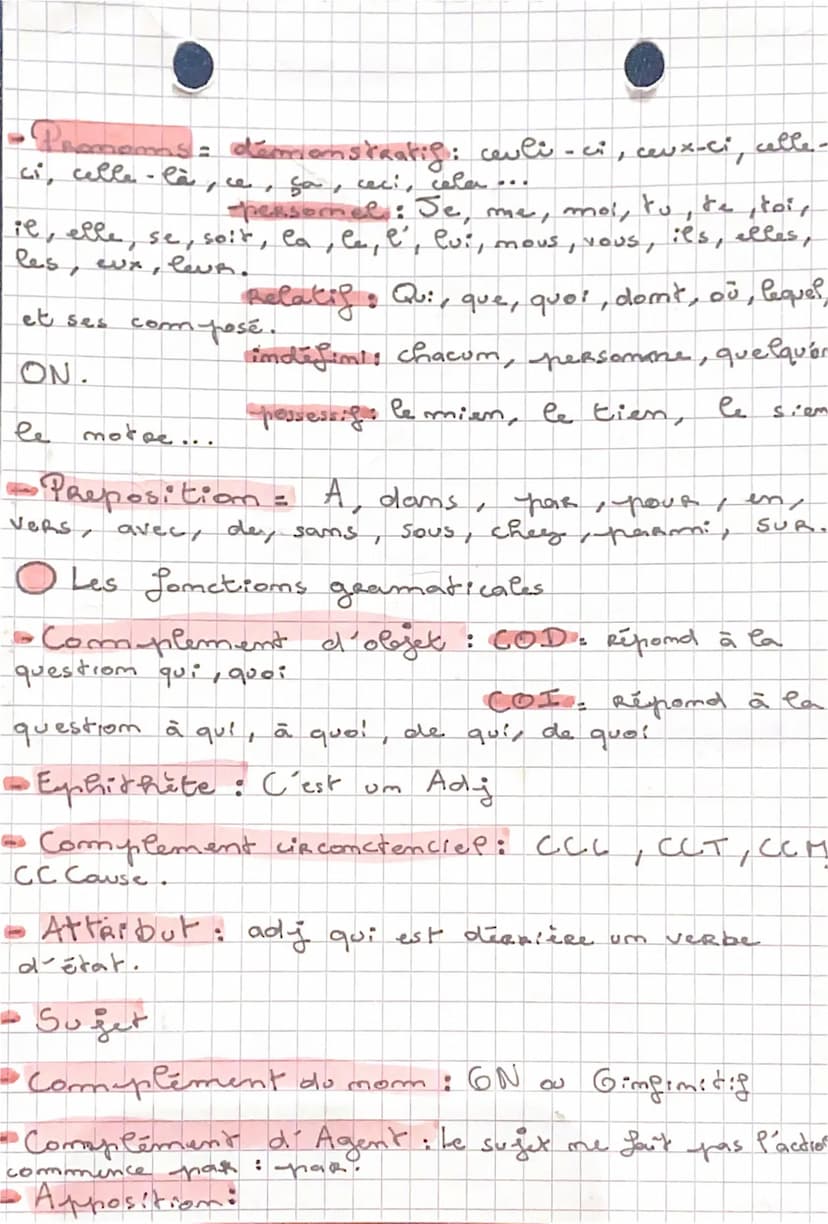 - Pronoms = démonstratif : celui-ci, ceux-ci, celle-
ci, celle-là, ce, ça, ceci, cela...
personnel : Je, me, moi, tu, te, toi,
il, elle, se, soit, la, le, l', lui, nous, vous, ils, elles,
les, eux, leur.
Relatif : Qui, que, quoi, dont, où, lequel,
et ses composé.
indéfini : chacun, personne, quelqu'un
ON.
possessif : le mien, le tien, le sien
le notre...
- Preposition = A, dans, par, pour, en,
vers, avec, de, sans, sous, chez, parmi, sur.
Les fonctions gramaticales
- Complement d'objet : COD = Répond à la
question qui, quoi
COI = Répond à la
question à qui, à quoi, de qui, de quoi
- Ephithète : C'est un Adj
- Complement circonctenciel : CCL, CCT, CCM
CC Cause.
- Attribut : adj qui est dérrière un verbe
d'état.
- Sujet
- Complément du nom : GN ou G infinitif
- Complément d'Agent : Le sujet ne fait pas l'action
commence par : par.
- Apposition :